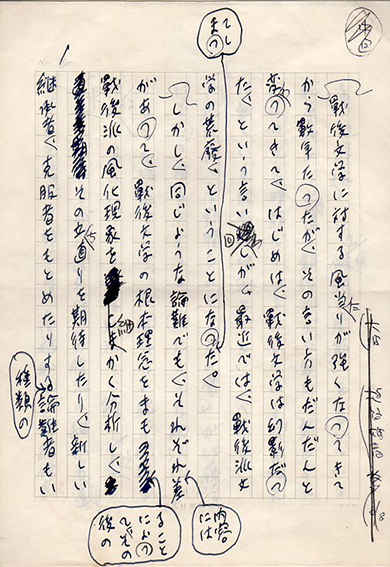 戰後文学に対する風当りが強くなってきて
から数年たったが、その言い方もだんだんと
変ってきて、はじめは、戰後文学は幻影だっ
た、という言い回しが、最近では、戰後派文
学の荒廃、ということになってしまった。
しかし、同じような論難でも、それぞれ内容には差
があって、戰後文学の根本理念をまもることによって、その後の
戰後派の風化現象を細かく分析し、
その立ち直りを期待したり、新しい
継承者、克服者をもとめたりする種類の論難者もい
No.
1